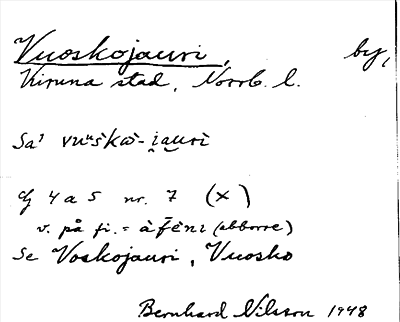 Vuoskojauri, by,
Kiruna stad, Norrb. l.
Sa¹ vuᵘskὼ-i̯au̯rì
Cf 4 a 5 nr. 7 (x)
v. på fi. = àfèni (abborre)
Se Voskojauri, Vuosko
Bernhard Nilsson 1948